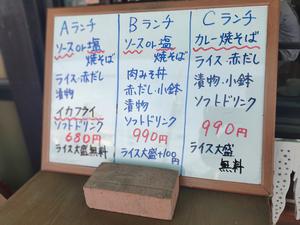 Aランチ
ソースor塩
焼そば
ライス・赤だし
漬物
イカフライ
ソフトドリンク
680円
ライス大盛無料
Bランチ
ソースor塩
焼そば
肉みそ丼
赤だし・小鉢
漬物
ソフトドリンク
990円
ライス大盛+100円
Cランチ
カレー焼そば
ライス・赤だし
漬物・小鉢
ソフトドリンク
990円
ライス大盛
無料